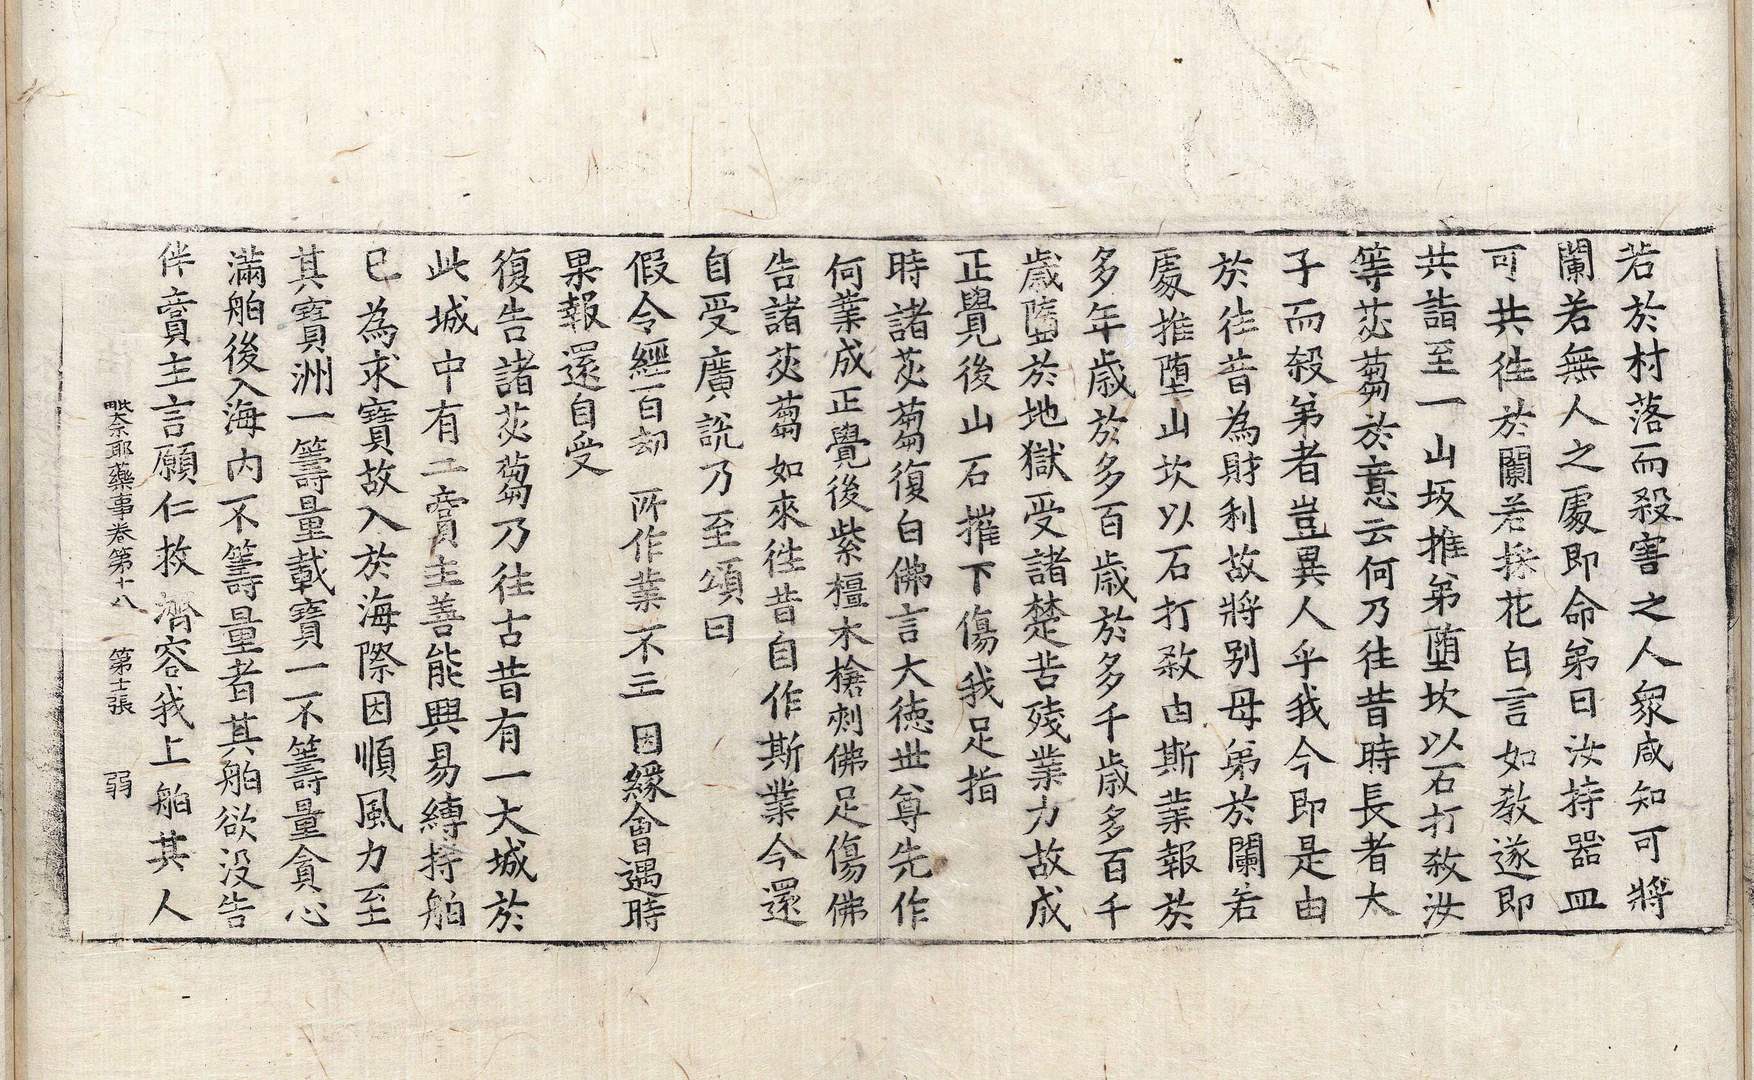 若於村落而殺害之人衆咸知可將
蘭若無人之處即命弟曰汝持器皿
可共徃於蘭若採花白言如教遂即
共詣至一山坂推弟墮坎以石打敎汝
等苾蒭於意云何乃往昔時長者太
子而殺弟者豈異人乎我今即是由
於徃昔為財利故將别母弟於蘭若
處推墮山坎以石打敎由斯業報於
多年歲於多百歲於多千歲多百千
歲墮於地獄受諸楚苦殘業力故成
正覺後山石摧下傷我足指
時諸苾蒭復白佛言大德世尊先作
何業成正覺後紫橿木槍刾佛足傷佛
告諸苾蒭如來徃昔自作斯業今還
自受廣說乃至頌曰
假令經百劫 所作業不亡 因緣會遇時
果報還自受
復告諸苾蒭乃往古昔有一大城於
此城中有二賣主善能興易縛持舶
已為求寶故入於海際因順風力至
其寶洲一籌量載寶一不籌量貪心
滿舶後入海內不籌量者其舶欲没告
伴賣主言願仁救濟容我上舶其人
毗奈耶藥事卷第十八 第十二張 弱